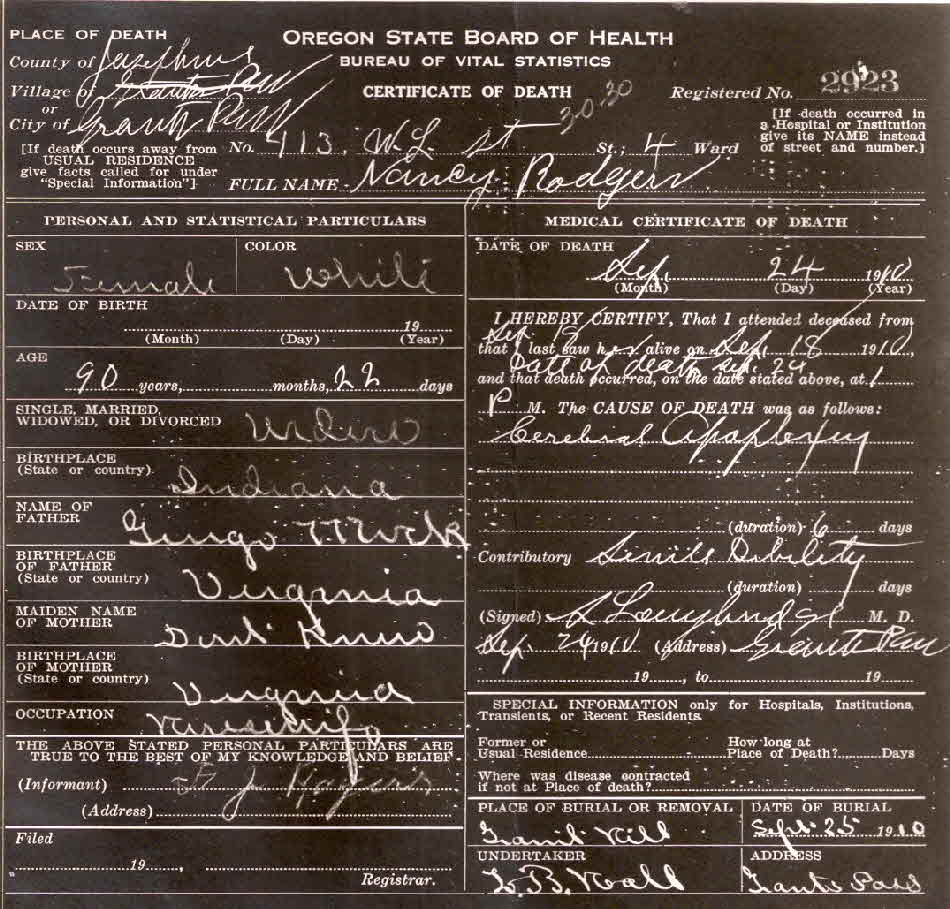 PLACE OF DEATH
County of Josephine
Village of Grants Pass
or
City of Grants Pass
[If death occurs away from USUAL RESIDENCE give facts called for under "Special Information"]
OREGON STATE BOARD OF HEALTH
BUREAU OF VITAL STATISTICS
CERTIFICATE OF DEATH
3030
Registered No. 2923
[If death occurred in a Hospital or Institution give its NAME instead of street and number.]
No. 413 W. L. st St.; 4 Ward
FULL NAME Nancy Rodgers
PERSONAL AND STATISTICAL PARTICULARS
SEX Female
COLOR White
DATE OF BIRTH
19
(Month) (Day) (Year)
AGE
90 years, months, 22 days
SINGLE, MARRIED,
WIDOWED, OR DIVORCED
BIRTHPLACE
(State or country) Indiana
NAME OF
FATHER
BIRTHPLACE
OF FATHER
(State or country) Virginia
MAIDEN NAME
OF MOTHER
BIRTHPLACE
OF MOTHER
(State or country) Virginia
OCCUPATION
THE ABOVE STATED PERSONAL PARTICULARS ARE
TRUE TO THE BEST OF MY KNOWLEDGE AND BELIEF
(Informant) J Rogers
(Address)
Filed
19
Registrar.
MEDICAL CERTIFICATE OF DEATH
DATE OF DEATH
Sep. 24 1910
(Month) (Day) (Year)
I HEREBY CERTIFY, That I attended deceased from
Sep. 18
that I last saw her alive on Sep. 18 1910,
Date of death Sep. 24
and that death occurred, on the date stated above, at 1
P M. The CAUSE OF DEATH was as follows:
Cerebral Apoplexy
(duration) 6 days
Contributory Senile Debility
(duration) days
(Signed) M. D.
Sep. 24 1910 (Address) Grants Pass
19 , to 19
SPECIAL INFORMATION only for Hospitals, Institutions,
Transients, or Recent Residents.
Former or
Usual Residence
How long at
Place of Death? Days
Where was disease contracted
if not at Place of death?
PLACE OF BURIAL OR REMOVAL
Granit Hill
DATE OF BURIAL
Sept. 25 1910
UNDERTAKER
L. B. Hall
ADDRESS
Grants Pass